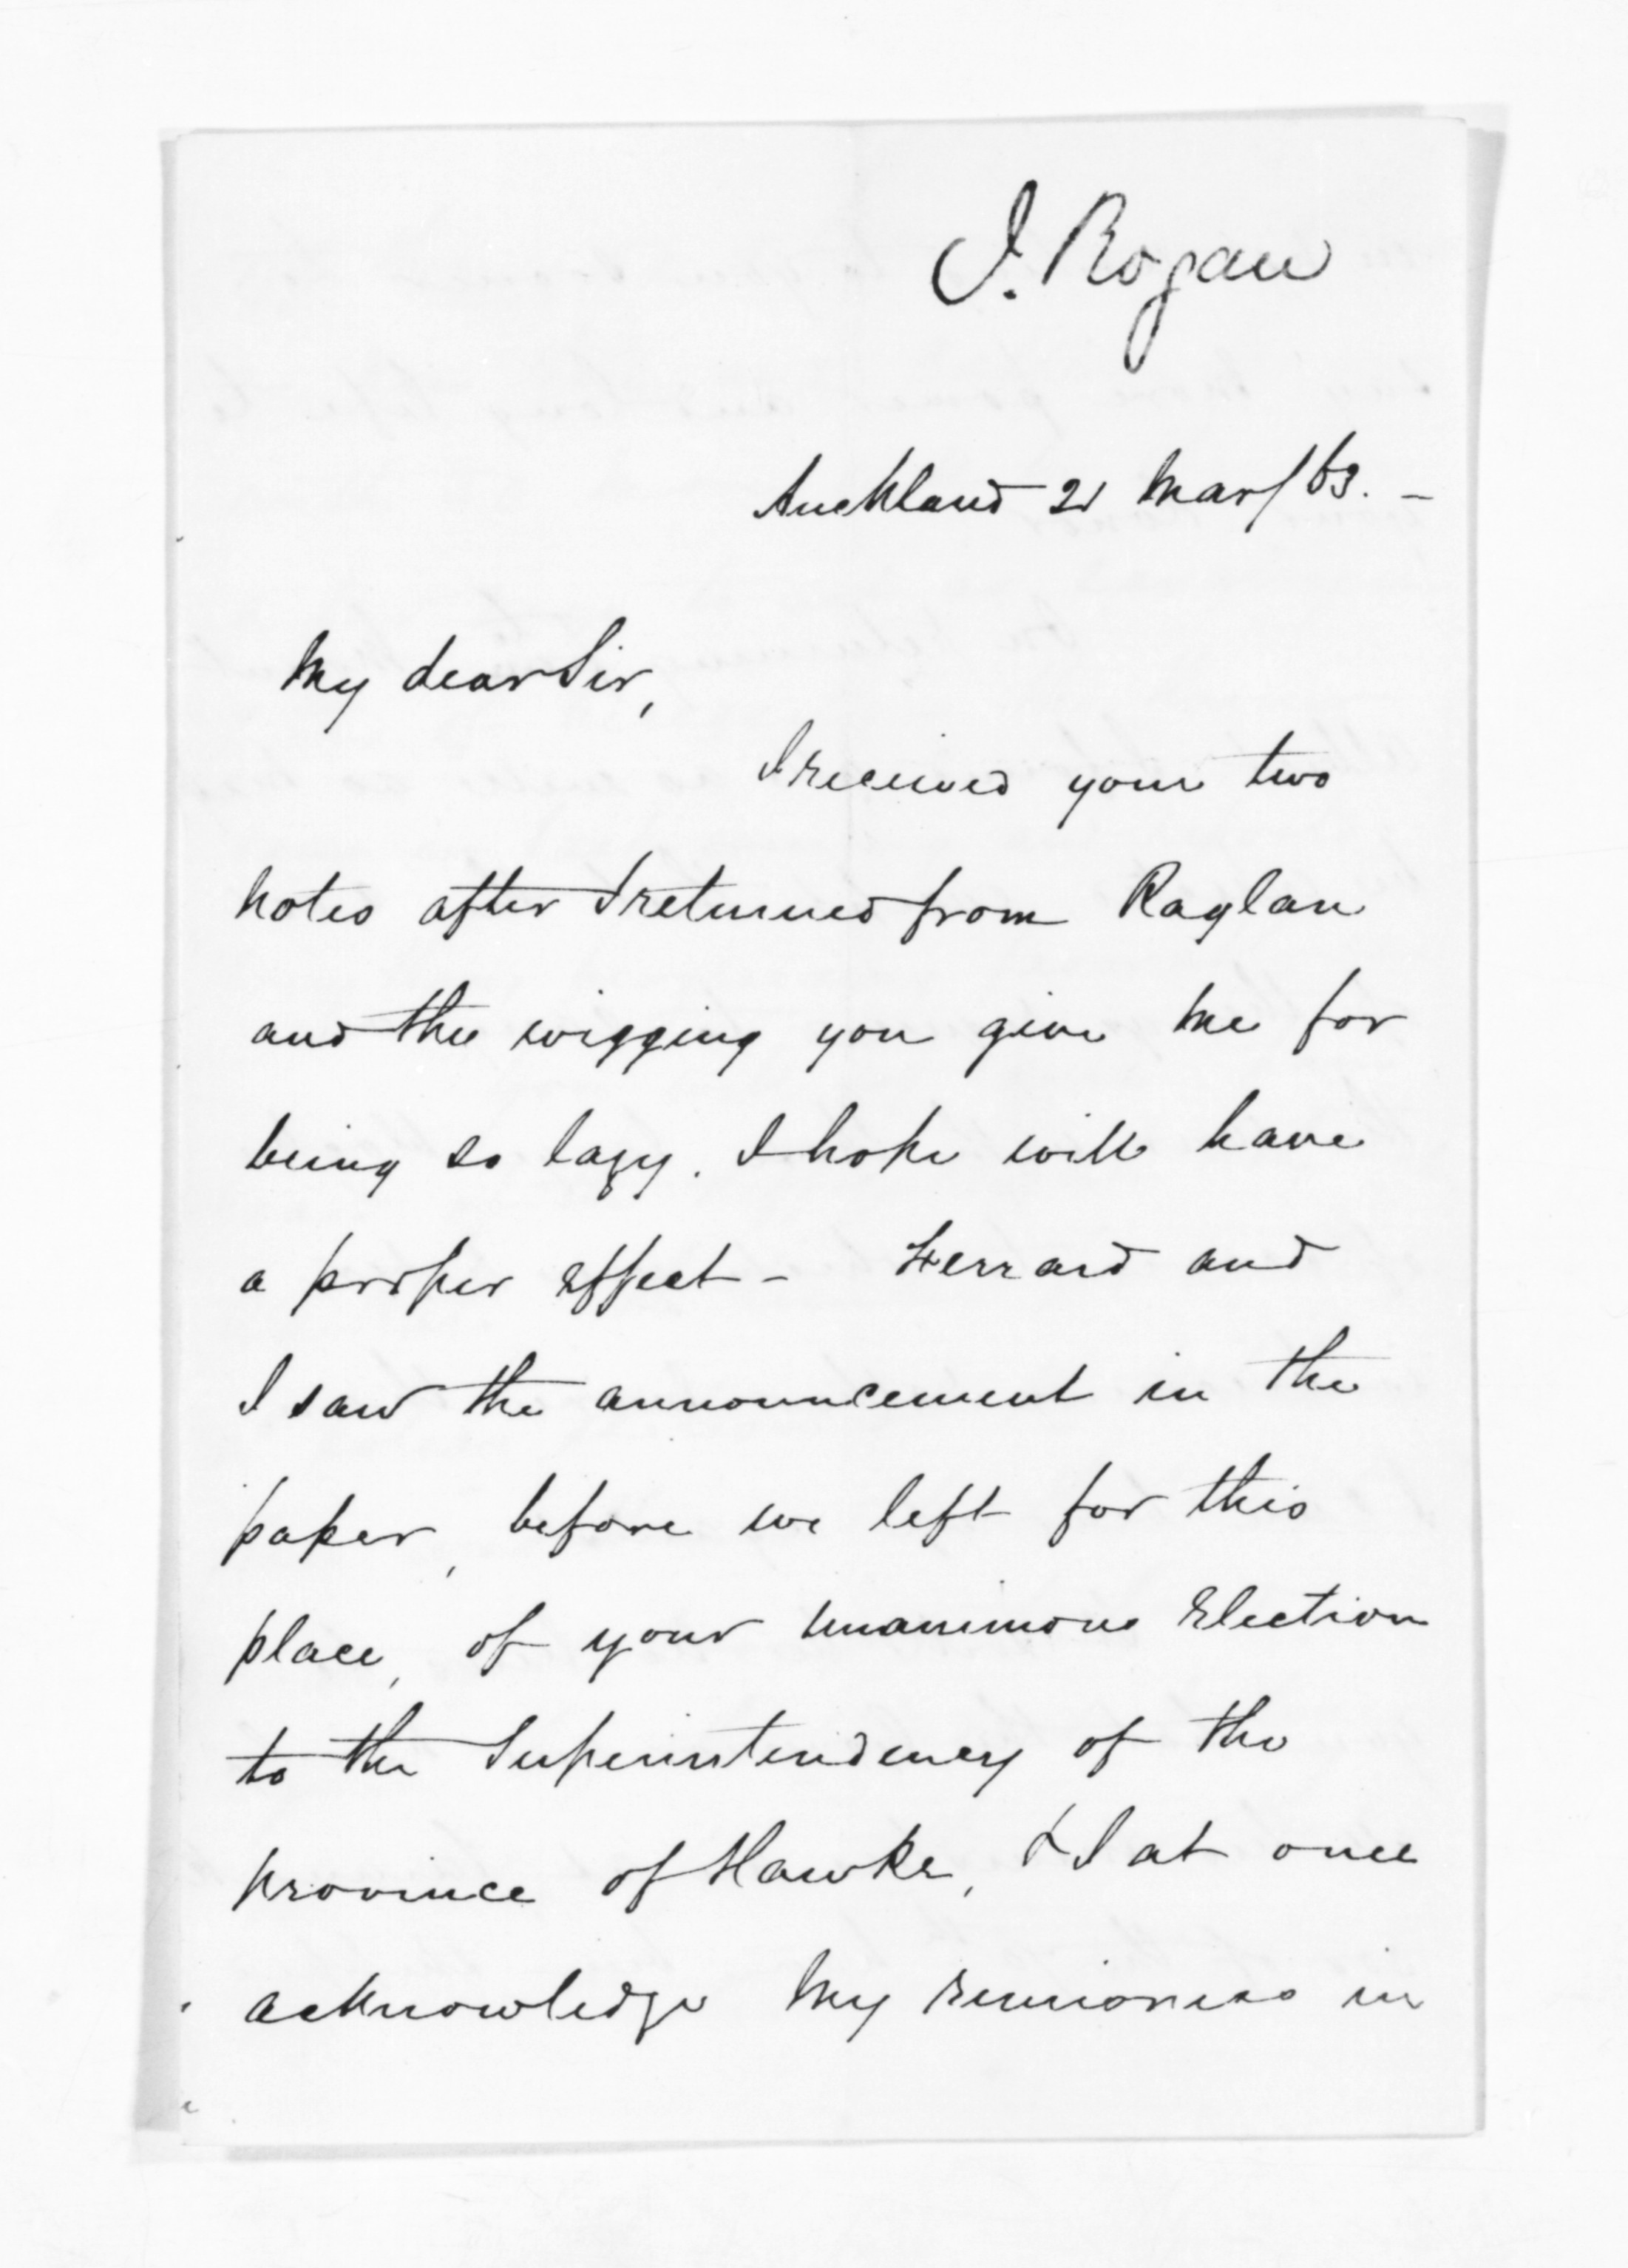 J. Rogan
Auckland 21 Mar/63. -
My dear Sir,
I received your two
notes after I returned from Raglan
and the wigging you give me for
being so lazy. I hope will have
a proper effect - Ferrard and
I saw the announcement in the
paper, before we left for this
place, of your unanimous Election
to the Superintendency of the
province of Hawke, & I at once
acknowledge my remissness in